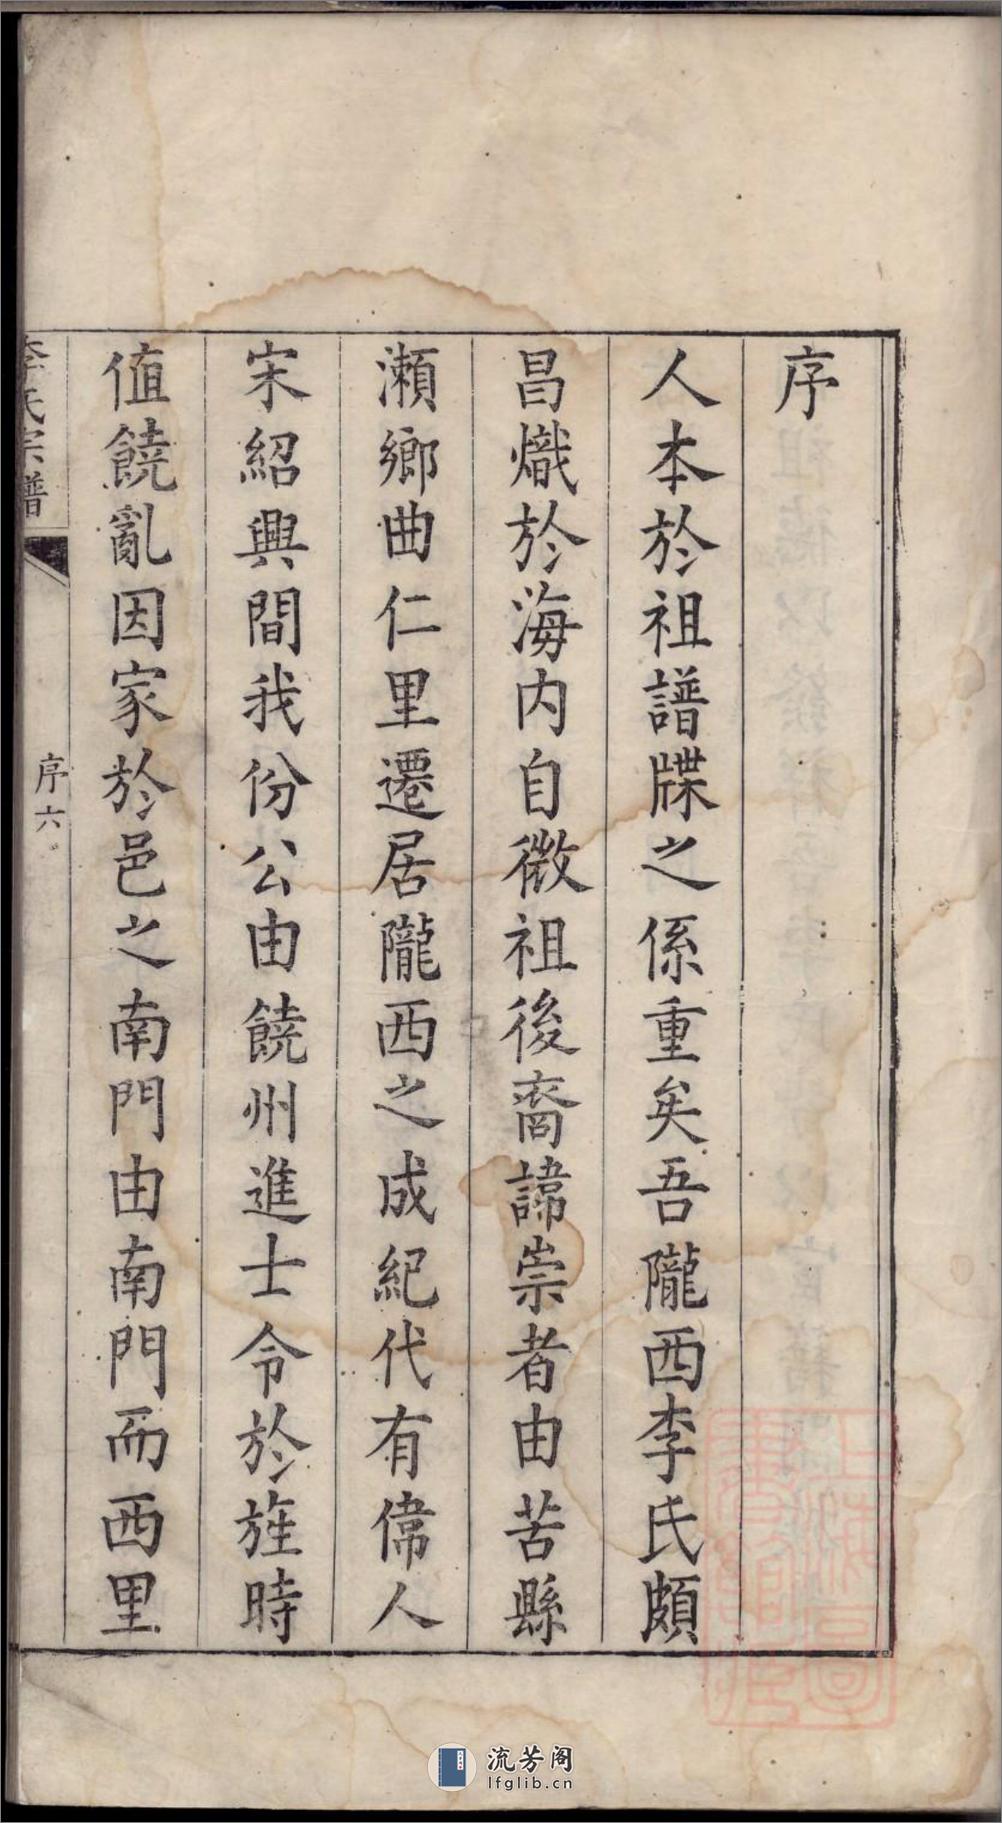 序
人本於祖譜牒之係重矣吾隴西李氏頗
昌熾於海內自微祖後裔諱崇者由苦縣
瀨鄉曲仁里遷居隴西之成紀代有偉人
宋紹興間我份公由饒州進士令於旌時
值饒亂因家於邑之南門由南門而西里
李氏宗譜
序六
流芳阁
lfglib.cn